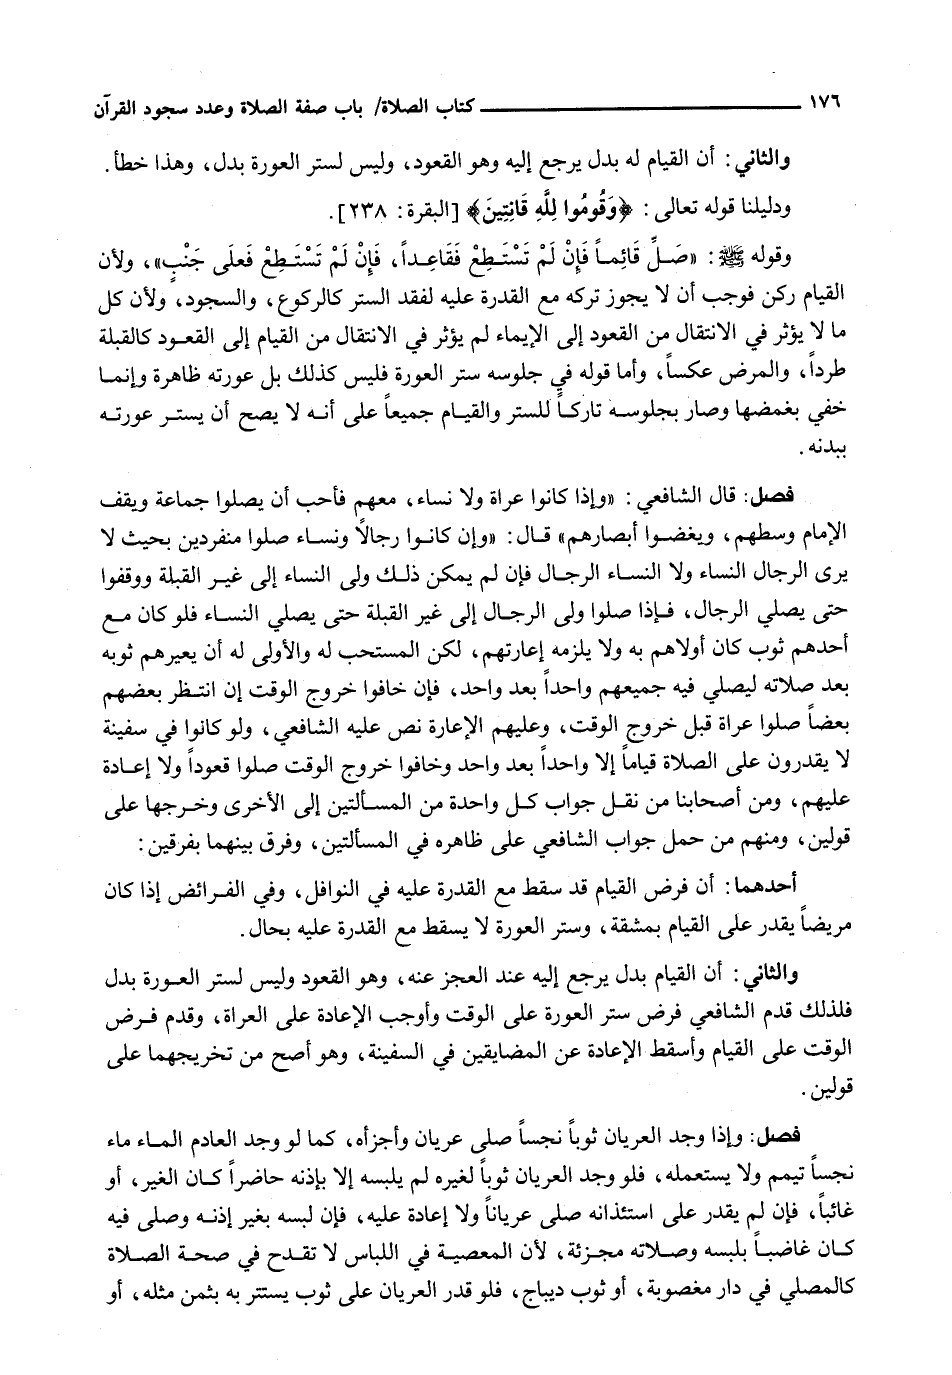 ١٧٦ ــــــــــــــــــــ كتاب الصلاة/ باب صفة الصلاة وعدد سجود القرآن
والثاني: أن القيام له بدل يرجع إليه وهو القعود، وليس لستر العورة بدل، وهذا خطأ.
ودليلنا قوله تعالى: ﴿وَقُومُوا لِلَّهِ قَانِتِينَ﴾ [البقرة: ٢٣٨].
وقوله ﷺ: «صَلِّ قَائِماً فَإِنْ لَمْ تَسْتَطِعْ فَقَاعِداً، فَإِنْ لَمْ تَسْتَطِعْ فَعَلَى جَنْبٍ»، ولأن
القيام ركن فوجب أن لا يجوز تركه مع القدرة عليه لفقد الستر كالركوع، والسجود، ولأن كل
ما لا يؤثر في الانتقال من القعود إلى الإيماء لم يؤثر في الانتقال من القيام إلى القعود كالقبلة
طرداً، والمرض عكساً، وأما قوله في جلوسه ستر العورة فليس كذلك بل عورته ظاهرة وإنما
خفي بغمضها وصار بجلوسه تاركاً للستر والقيام جميعاً على أنه لا يصح أن يستر عورته
ببدنه.
فصل: قال الشافعي: «وإذا كانوا عراة ولا نساء، معهم فأحب أن يصلوا جماعة ويقف
الإمام وسطهم، ويغضوا أبصارهم» قال: «وإن كانوا رجالاً ونساء صلوا منفردين بحيث لا
يرى الرجال النساء ولا النساء الرجال فإن لم يمكن ذلك ولى النساء إلى غير القبلة ووقفوا
حتى يصلي الرجال، فإذا صلوا ولى الرجال إلى غير القبلة حتى يصلي النساء فلو كان مع
أحدهم ثوب كان أولاهم به ولا يلزمه إعارتهم، لكن المستحب له والأولى له أن يعيرهم ثوبه
بعد صلاته ليصلي فيه جميعهم واحداً بعد واحد، فإن خافوا خروج الوقت إن انتظر بعضهم
بعضاً صلوا عراة قبل خروج الوقت، وعليهم الإعارة نص عليه الشافعي، ولو كانوا في سفينة
لا يقدرون على الصلاة قياماً إلا واحداً بعد واحد وخافوا خروج الوقت صلوا قعوداً ولا إعادة
عليهم، ومن أصحابنا من نقل جواب كل واحدة من المسألتين إلى الأخرى وخرجها على
قولين، ومنهم من حمل جواب الشافعي على ظاهره في المسألتين، وفرق بينهما بفرقين:
أحدهما: أن فرض القيام قد سقط مع القدرة عليه في النوافل، وفي الفرائض إذا كان
مريضاً يقدر على القيام بمشقة، وستر العورة لا يسقط مع القدرة عليه بحال.
والثاني: أن القيام بدل يرجع إليه عند العجز عنه، وهو القعود وليس لستر العورة بدل
فلذلك قدم الشافعي فرض ستر العورة على الوقت وأوجب الإعادة على العراة، وقدم فرض
الوقت على القيام وأسقط الإعادة عن المضايقين في السفينة، وهو أصح من تخريجهما على
قولين.
فصل: وإذا وجد العريان ثوباً نجساً صلى عريان وأجزأه، كما لو وجد العادم الماء ماء
نجساً تيمم ولا يستعمله، فلو وجد العريان ثوباً لغيره لم يلبسه إلا بإذنه حاضراً كان الغير، أو
غائباً، فإن لم يقدر على استئذانه صلى عرياناً ولا إعادة عليه، فإن لبسه بغير إذنه وصلى فيه
كان غاضباً بلبسه وصلاته مجزئة، لأن المعصية في اللباس لا تقدح في صحة الصلاة
كالمصلي في دار مغصوبة، أو ثوب ديباج، فلو قدر العريان على ثوب يستتر به بثمن مثله، أو